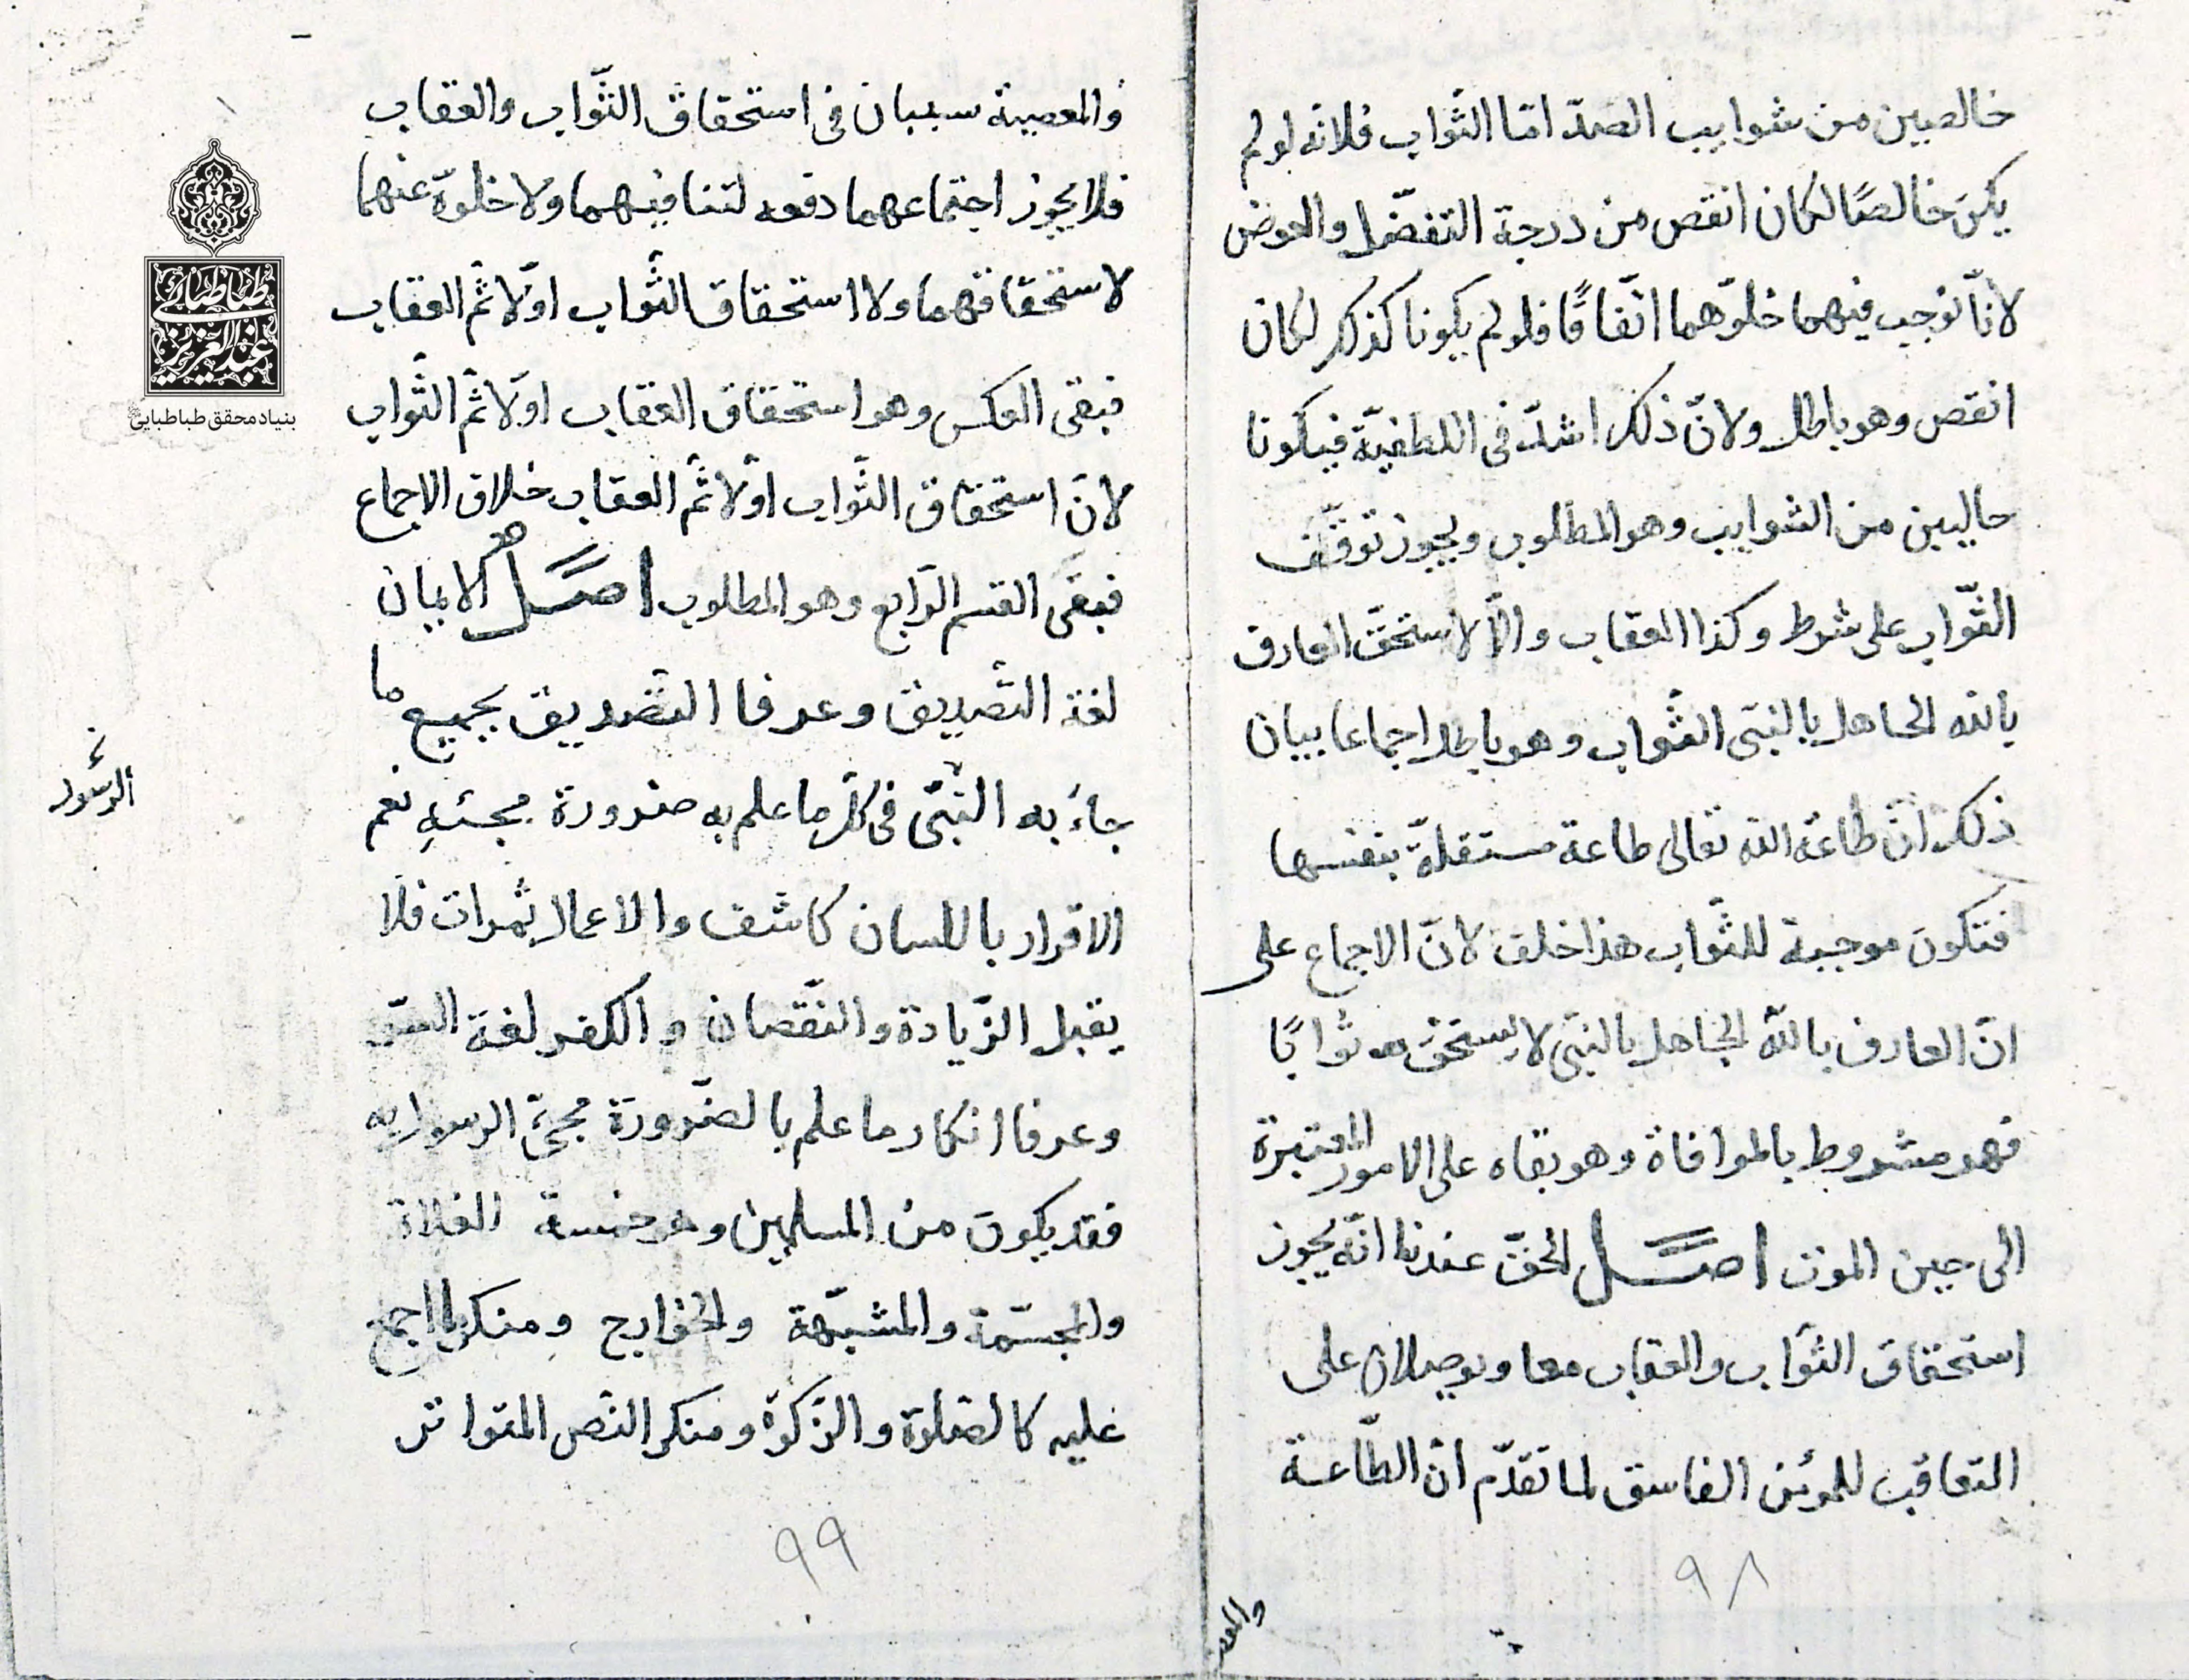 خالصين من شوايب الضدّ امّا الثّواب فلانّه لو لم
يكن خالصًا لكان انقص من درجة التفضّل والعوض
لانّا نوجب فيهما خلوّهما اتّفاقًا فلو لم يكونا كذلك لكان
انقص وهو باطل ولانّ ذلك اشدّ فى اللطفيّة فيكونا
خاليين من الشوايب وهو المطلوب ويجوز توقّف
الثّواب على شرط وكذا العقاب والّا لاستحقّ العارف
بالله الجاهل بالنبى الثّواب وهو باطل اجماعا بيان
ذلك انّ طاعة الله تعالى طاعة مستقلّة بنفسها
فتكون موجبة للثّواب هذا خلف لانّ الاجماع على
انّ العارف باللّه الجاهل بالنبى لا يستحقّ به ثوابًا
فهو مشروط بالموافاة وهو بقاه على الامور المعتبرة
الى حين الموت اصل الحقّ عندنا انّه يجوز
استحقاق الثّواب والعقاب معا ويوصلان على
التعاقب للمؤمن الفاسق لما تقدّم انّ الطّاعة
٩٨
والمعصية
والمعصية سببان فى استحقاق الثّواب والعقاب
فلا يجوز اجتماعهما دفعه لتنافيهما ولا خلوّه عنهما
لاستحقاقهما ولا استحقاق الثّواب اوّلا ثمّ العقاب
فبقى العكس وهو استحقاق العقاب اوّلا ثمّ الثّواب
لانّ استحقاق الثّواب اوّلا ثمّ العقاب خلاف الاجماع
فبقى القسم الرّابع وهو المطلوب اصل الايمان
لغة التّصديق وعرفا التّصديق بجميع ما
جاءَ به النّبىّ فى كلّ ما علم به ضرورة مجيئه نعم
الرّسول
الاقرار باللسان كاشف والاعمال ثمرات فلا
يقبل الزّيادة والنّقصان والكفر لغة السّتر
وعرفا انكار ما علم بالضّرورة مجىّ الرسول به
فقد يكون من المسلمين وهو خمسة الغلاة
والمجسّمة والمشبّهة والخوارج ومنكر ما اجمع
عليه كالصّلوة والزّكوة ومنكر النّص المتواتر
٩٩
طباطبائى
عبدالعزيز
بنیاد محقق طباطبایی